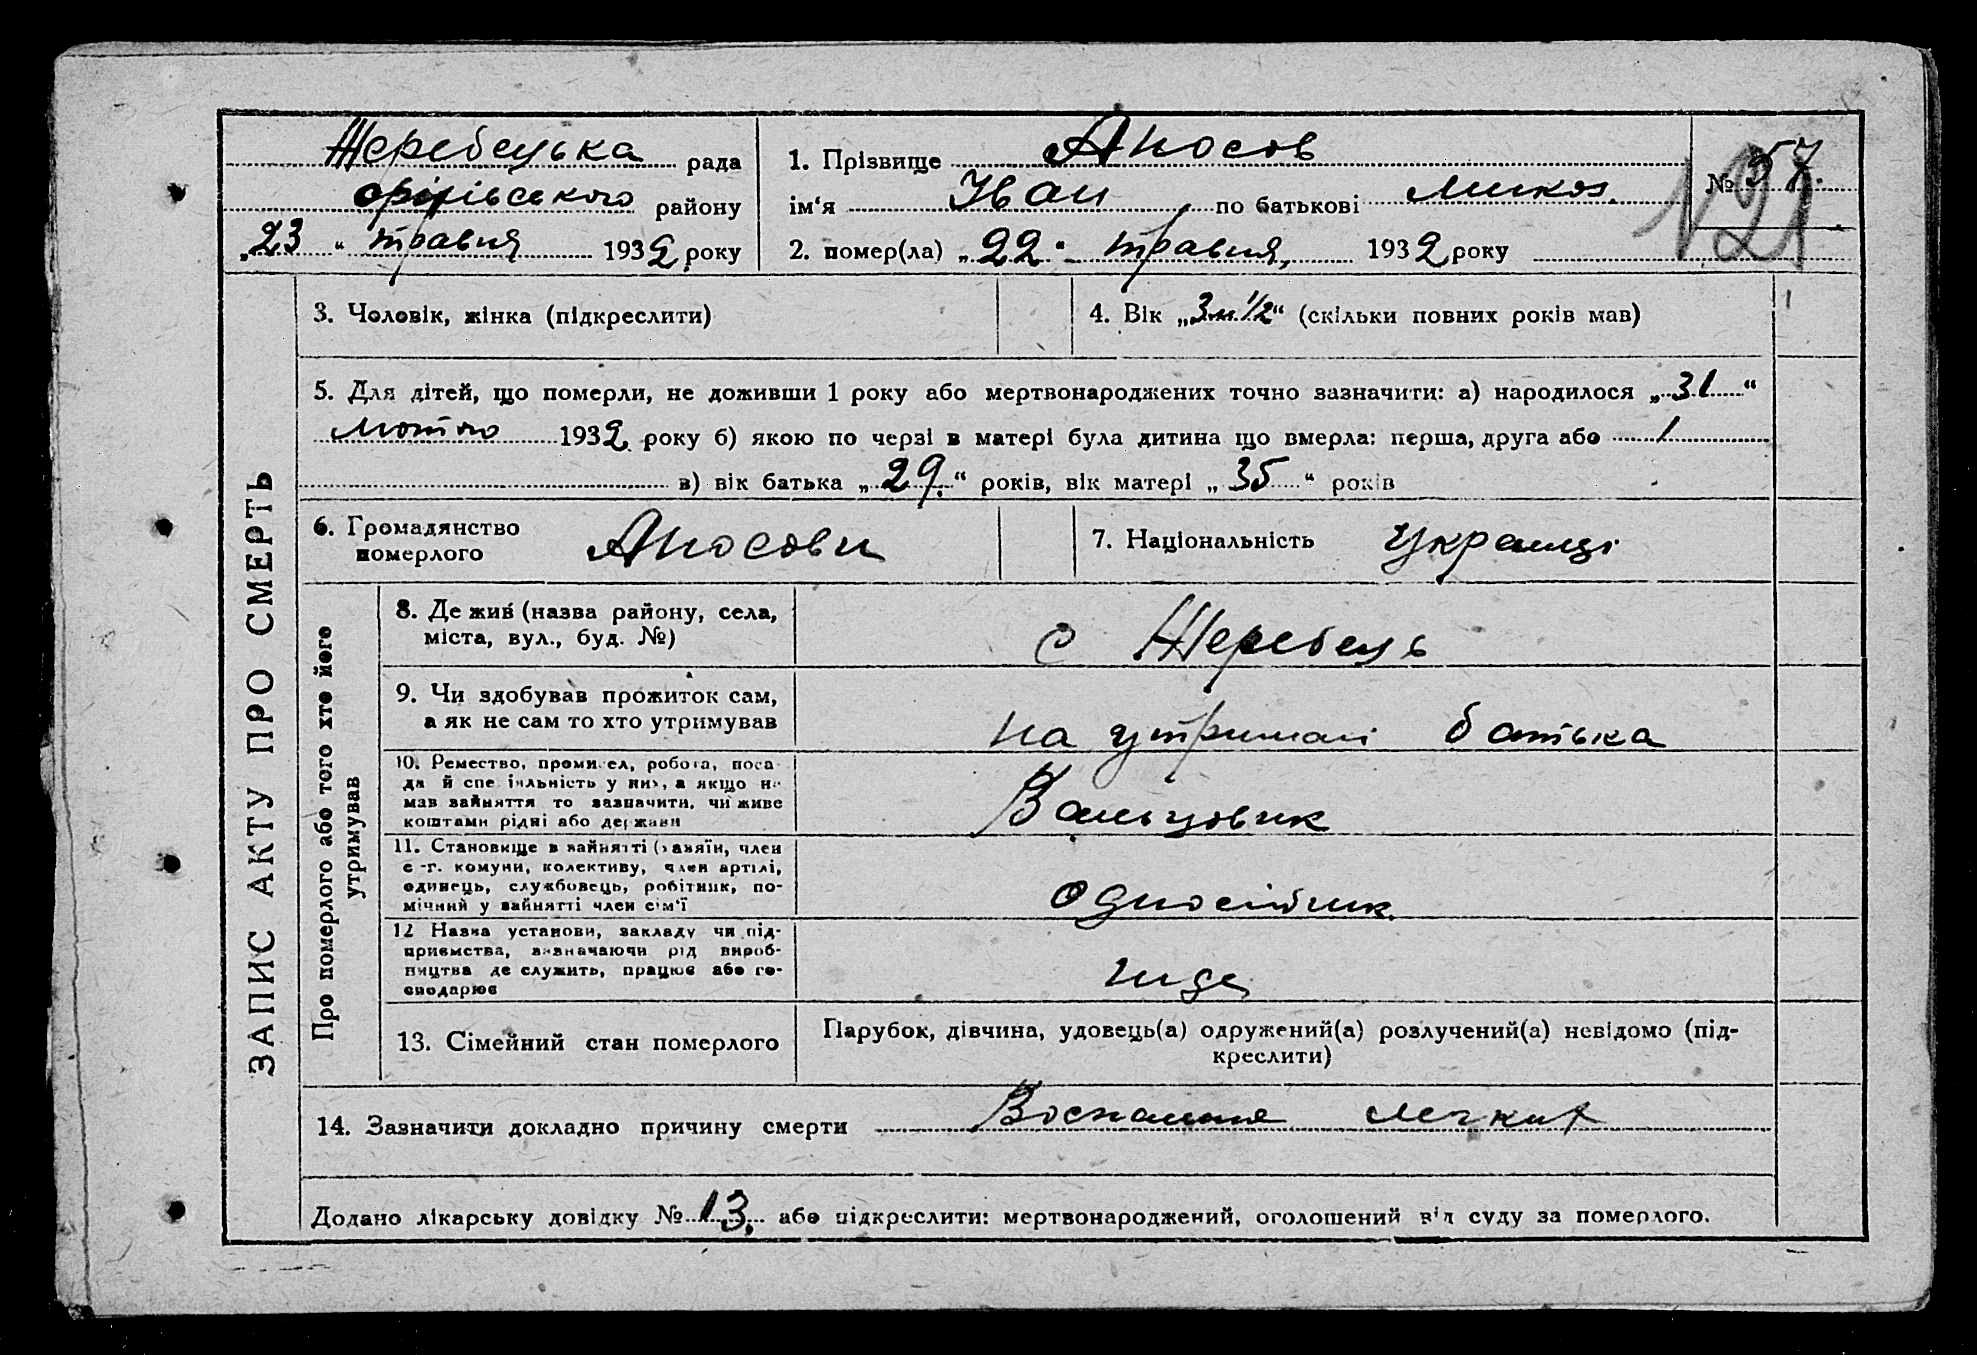 Жеребецька рада
оріхівського району
„23“ травня 1932 року
1. Прізвище Аносов
ім‘я Іван по батькові Микол.
2. помер(ла) „22“ травня, 1932 року
№ 57.
121
ЗАПИС АКТУ ПРО СМЕРТЬ
3. Чоловік, жінка (підкреслити)
4. Вік „3 м. 1/2“ (скільки повних років мав)
5. Для дітей, що померли, не доживши 1 року або мертвонароджених точно зазначити: а) народилося „31“
лютого 1932 року б) якою по черзі в матері була дитина що вмерла: перша, друга або 1
в) вік батька „29.“ років, вік матері „35“ років
6. Громадянство
померлого
Аносови
7. Національність
Українці
Про померлого або того хто його
утримував
8. Де жив (назва району, села,
міста, вул., буд. №)
с Жеребець
9. Чи здобував прожиток сам,
а як не сам то хто утримував
на утримані батька
10. Ремество, промисел, робота, поса-
да й спеціяльність у них, а якщо не
мав зайняття то зазначити, чи живе
коштами рідні або держави
Вальцовик
11. Становище в зайнятті (хазяїн, член
с-г. комуни, колективу, член артілі,
одинець, службовець, робітник, по-
мічний у зайнятті член сім'ї
Одноосібник
12 Назва установи, закладу чи під-
приємства, визначаючи рід вироб-
ництва де служить, працює або го-
сподарює
13. Сімейний стан померлого
Парубок, дівчина, удовець(а) одружений(а) розлучений(а) невідомо (під-
креслити)
14. Зазначити докладно причину смерти Воспаления легких
Додано лікарську довідку № 13. або підкреслити: мертвонароджений, оголошений від суду за померлого.